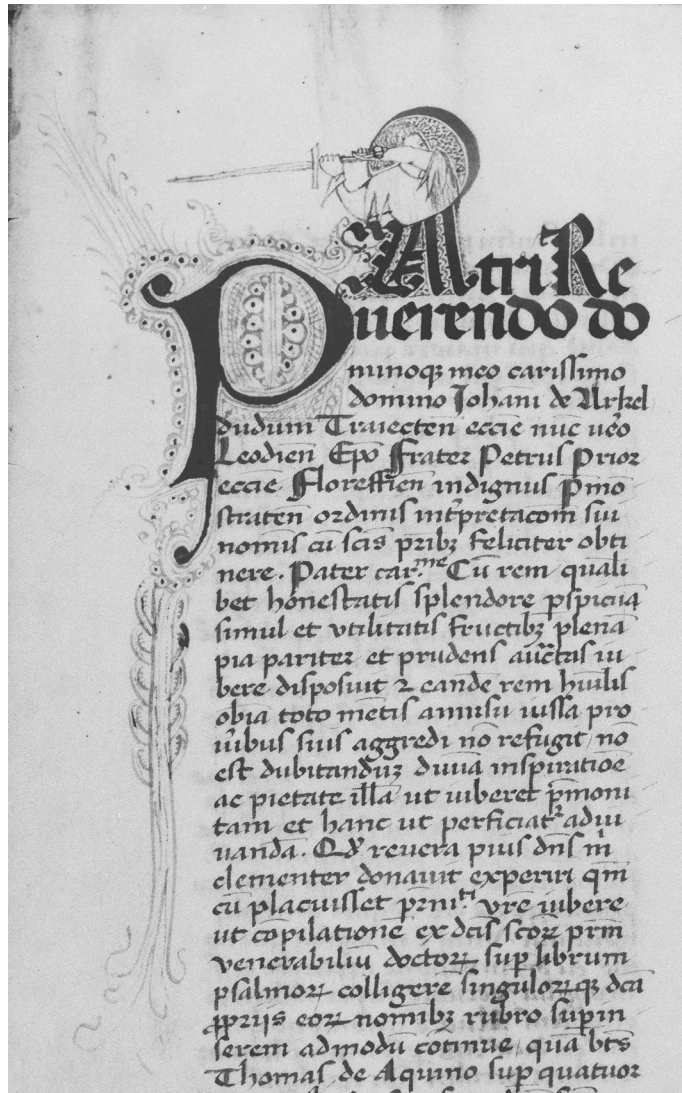 PAtri Re
uerendo do
minoq; meo carissimo
domino Johāni de Arkel
dudum Traiecteñ eccīe nūc ūo
Leodieñ Epō Frater Petrus Prior
eccīe Floreffieñ indignus p̄mō
strateñ ordinis int̄pretacōm sui
nomīs cū scīs p̄rib; feliciter obti
nere. Pater car.me Cū rem quali
bet honestatis splendore p̄spicuā
simul et vtilitatis fructib; plenā
pia pariter et prudens auct̄tas iu
bere disposuit ⁊ eandē rem hūilis
obīa toto mētis annisu iussa pro
uirib; suis aggredi nō refugit nō
est dubitandū; diuīa inspiratiōe
ac pietate illā ut iuberet p̄moni
tam et hanc ut perficiat᷑ adiu
uandā. Qđ reuera pius dn̄s m̄
clementer donauit experiri qm̄
cū placuisset p̄rnīti vr̄e iubere
ut cōpilationē ex dcīs scōꝝ prm̄
venerabiliū doctoꝝ suꝑ librum
psalmoꝝ colligerē singuloꝝq; dcā
ꝓpriis eoꝝ nomīb; rubro suꝑin
serem ad modū cōtinue quā btūs
Thomas de Aquino suꝑ quatuor